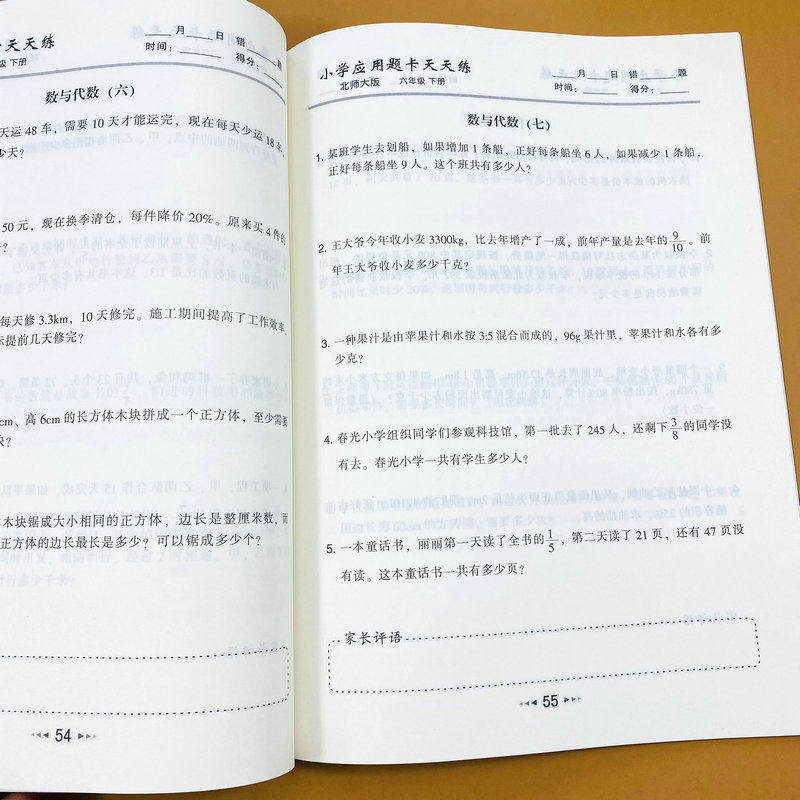 天天练
月 日 错 题
级 下册
时间： 得分：
数与代数（六）
天运 48 车，需要 10 天才能运完，现在每天少运 18 车，
少天？
50 元，现在换季清仓，每件降价 20%。原来买 4 件的
每天修 3.3km，10 天修完。施工期间提高了工作效率，
提前几天修完？
cm、高 6cm 的长方体木块拼成一个正方体，至少需要
木块锯成大小相同的正方体，边长是整厘米数，而
正方体的边长最长是多少？可以锯成多少个？
54
小学应用题卡天天练
北师大版 六年级 下册
月 日 错 题
时间： 得分：
数与代数（七）
1. 某班学生去划船，如果增加 1 条船，正好每条船坐 6 人，如果减少 1 条船，
正好每条船坐 9 人。这个班共有多少人？
2. 王大爷今年收小麦 3300kg，比去年增产了一成，前年产量是去年的 9/10 。前
年王大爷收小麦多少千克？
3. 一种果汁是由苹果汁和水按 3:5 混合而成的，96g 果汁里，苹果汁和水各有多
少克？
4. 春光小学组织同学们参观科技馆，第一批去了 245 人，还剩下 3/8 的同学没
有去。春光小学一共有学生多少人？
5. 一本童话书，丽丽第一天读了全书的 1/5 ，第二天读了 21 页，还有 47 页没
有读。这本童话书一共有多少页？
家长评语
55